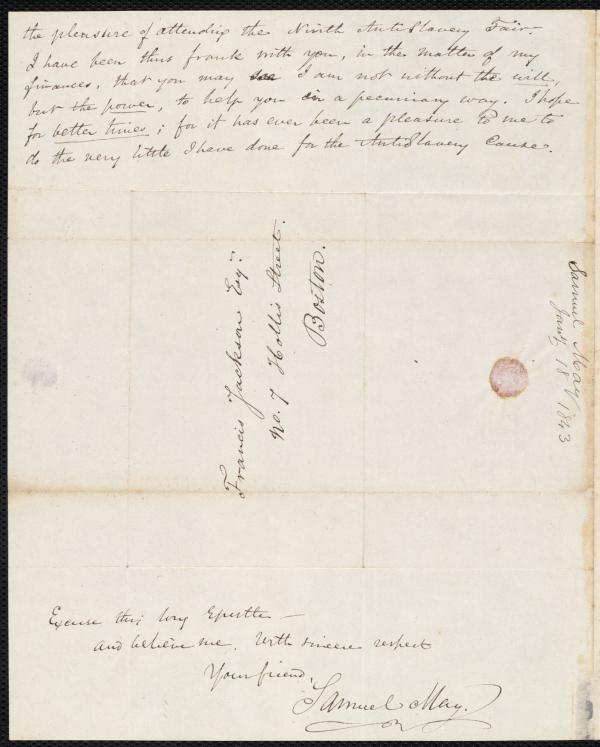 the pleasure of attending the Ninth AntiSlavery Fair.
I have been thus frank with you, in the matter of my
finances, that you may see I am not without the will,
but the power, to help you in a pecuniary way. I hope
for better times; for it has ever been a pleasure to me to
do the very little I have done for the AntiSlavery Cause.
Francis Jackson Esqr.
No. 7 Hollis Street.
Boston.
Samuel May
Jany 18 1843
Excuse this long Epistle —
and believe me, With sincere respect
Your friend,
Samuel May.